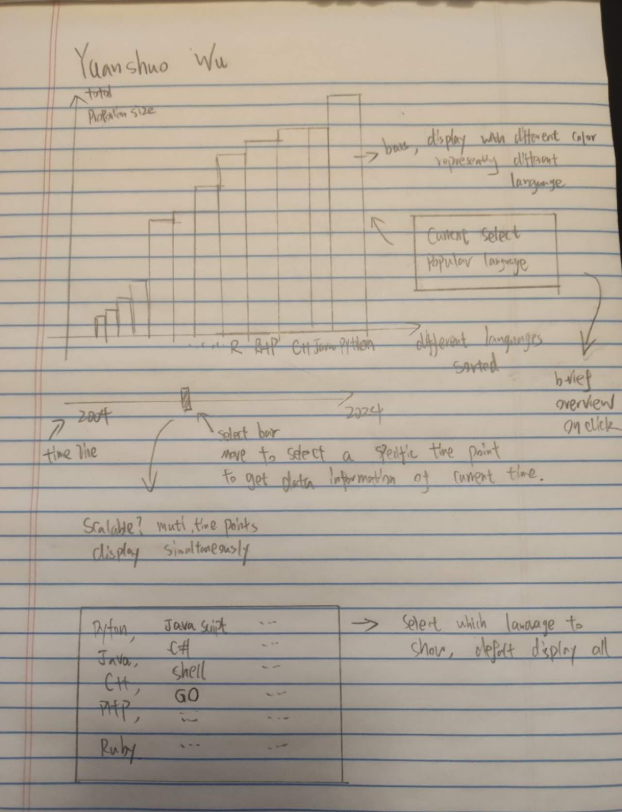 Yuanshuo Wu
total
size
bars, display with different color
different
language
Current select
Popular language
... R PHP C++ Java Python
different languages
sorted
brief
overview
on click
2004
2024
time line
select bar
move to select a specific time point
to get data information of current time.
Scalable? muti, time points
display simultaneously
Pyton, Java suipt ...
Java, C# ...
C++, shell ...
PHP, GO ...
... ...
Ruby ... ...
select which language to
show, defalt display all